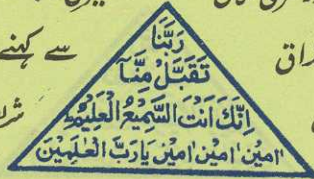 رَبَّنَا
تَقَبَّلْ مِنَّا
اِنَّكَ اَنْتَ السَّمِيْعُ الْعَلِيْمُ
اٰمِيْن اٰمِيْن اٰمِيْن يَارَبَّ الْعٰلَمِيْنَ
سے کہنے
راق